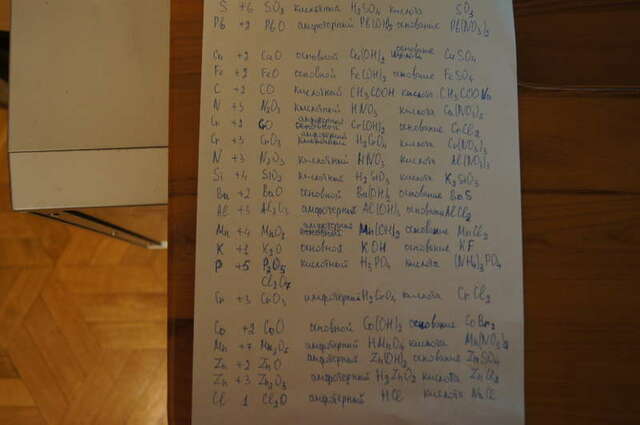 S +6 SO3 кислотный H2SO4 кислота SO3
Pb +2 PbO амфотерный Pb(OH)2 основание Pb(NO3)2
Cu +2 CuO основной Cu(OH)2 основание CuSO4
Fe +2 FeO основной Fe(OH)2 основание FeSO4
C +2 CO кислотный CH3COOH кислота CH3COONa
N +5 N2O5 кислотный HNO3 кислота Ca(NO3)2
Cr +2 CrO амфотерный основной Cr(OH)2 основание CrCl2
Cr +3 CrO3 амфотерный кислотный H2CrO4 кислота Cr(NO3)3
N +3 N2O3 кислотный HNO3 кислота Al(NO3)3
Si +4 SiO2 кислотный H2SiO3 кислота K2SiO3
Ba +2 BaO основной Ba(OH)2 основание BaS
Al +3 амфотерный Al(OH)3 основание AlCl2
Mn +4 MnO2 амфотерный основной Mn(OH)2 основание MnCl2
K +1 K2O основной KOH основание KF
P +5 P2O5 кислотный H3PO4 кислота (NH4)3PO4
Cl2O7
Cr +3 CrO3 амфотерный H2CrO4 кислота CrCl2
Co +2 CoO основной Co(OH)2 основание CoBr2
Mn +7 амфотерный HMnO4 кислота Mn(NO3)2
Zn +2 ZnO амфотерный Zn(OH)2 основание ZnSO4
Zn +3 Zn2O3 амфотерный H2ZnO2 кислота ZnCl2
Cl 1 Cl2O амфотерный HCl кислота NaCl